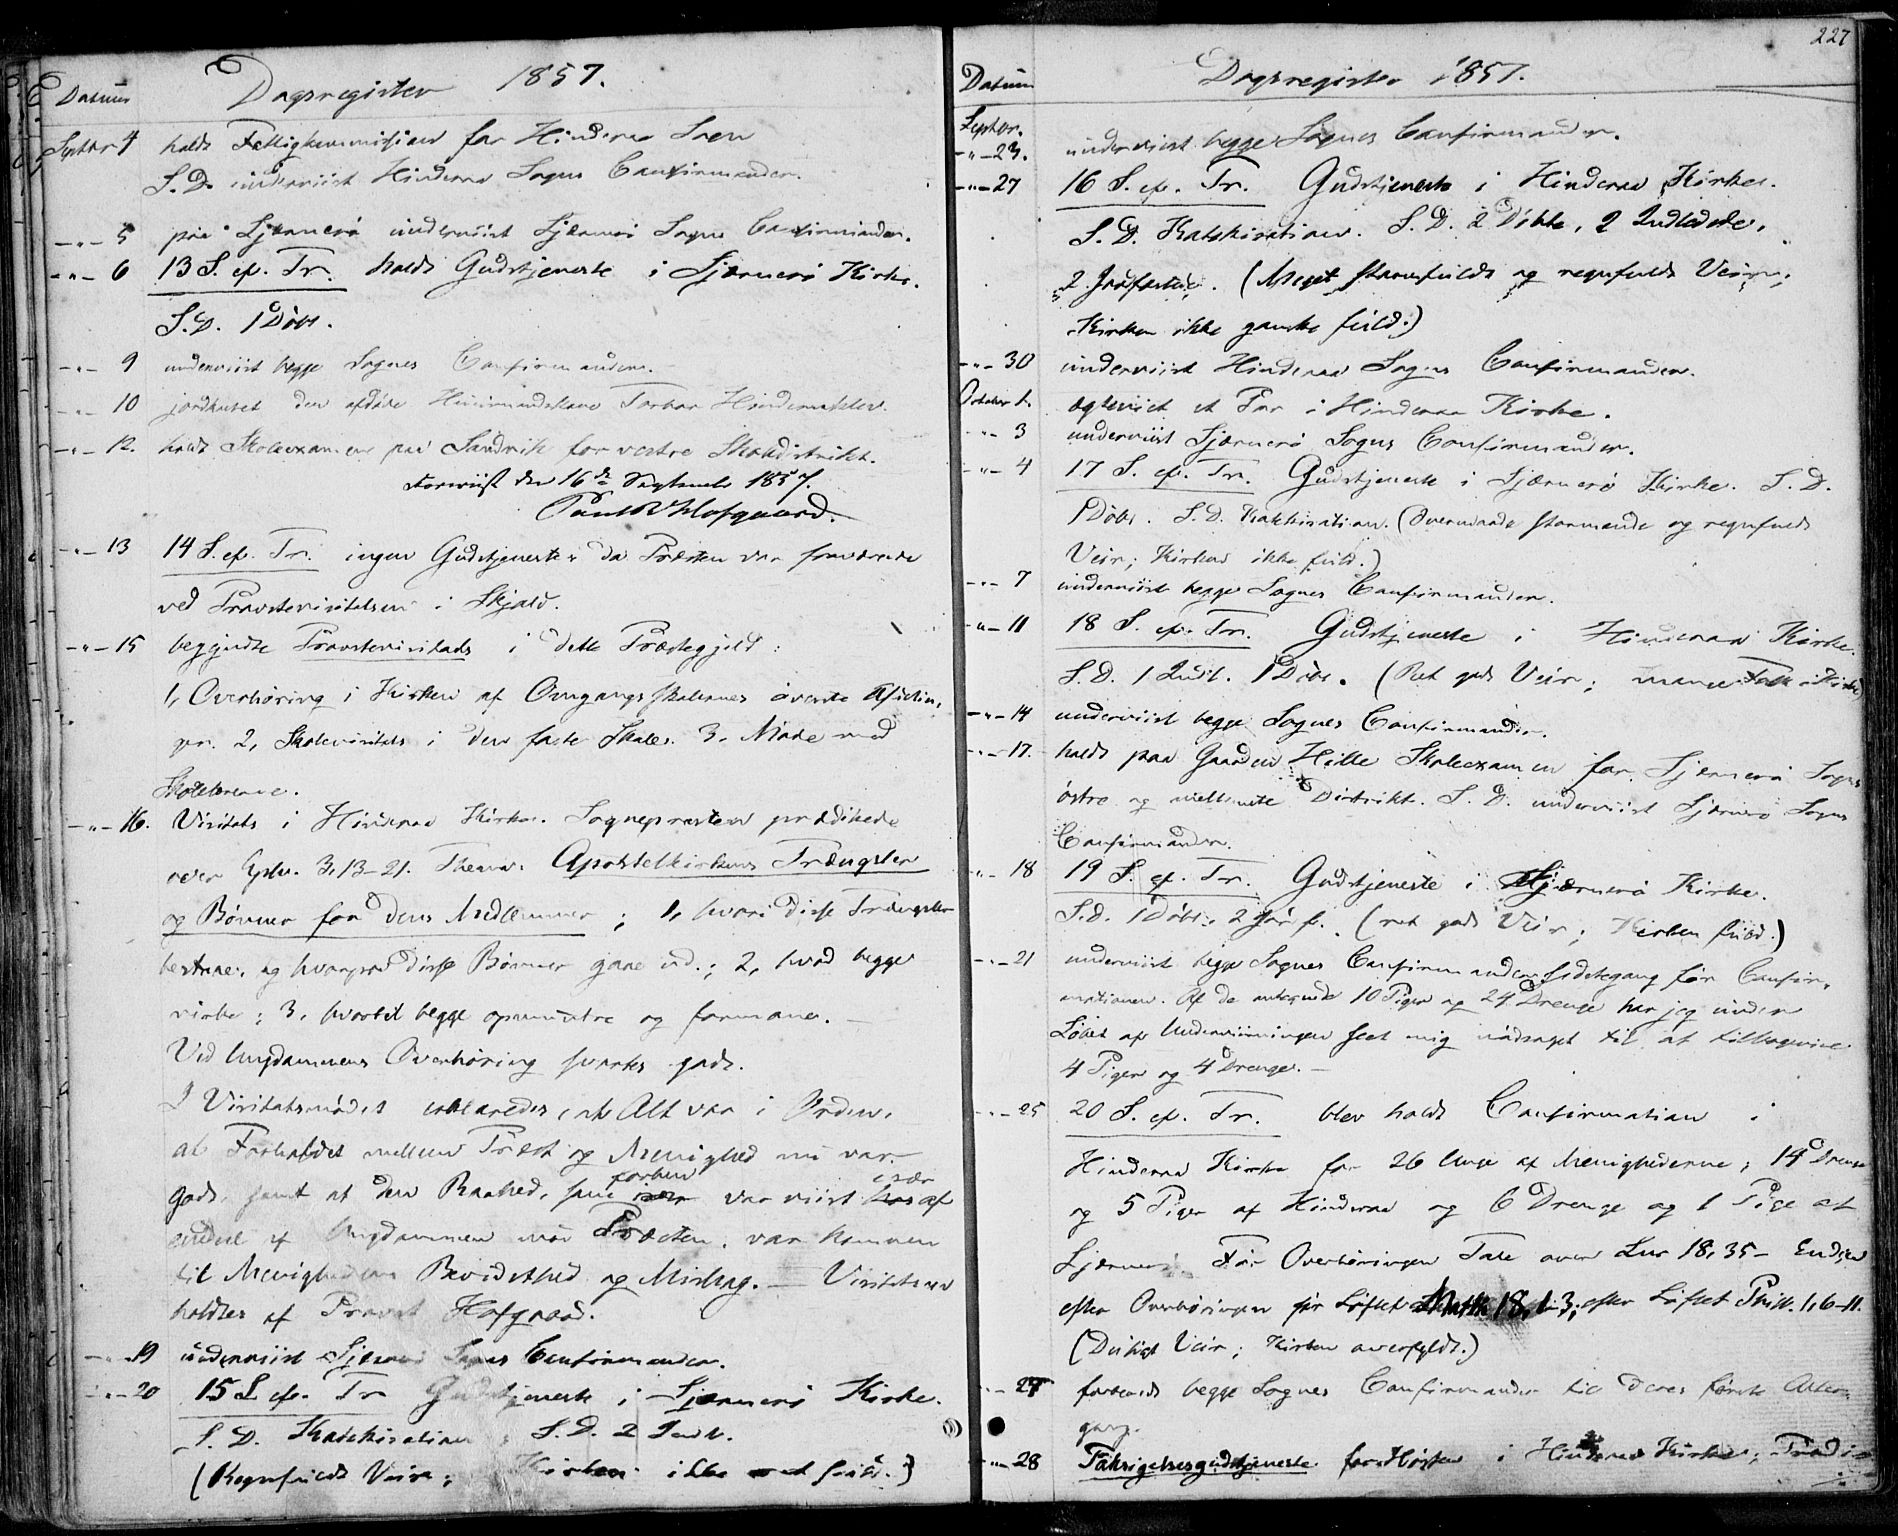 Datum Dagsregister 1857.
Septbr 4 holdt Fattigkommission for Hinderaa Sogn
S. D. underviist Hinderaa Sogns Confirmander.
-"- 5 paa Sjærnerö underviist Sjærnerö Sogns Confirmander.
-"- 6 13 S. ef. Tr. holdt Gudstjeneste i Sjærnerö Kirke.
S. D. 1 Döbt.
-"- 9 underviist begge Sognes Confirmander.
-"- 10 jordkastet den afdöde Huusmandskone
-"- 12. holdt Skoleexamen paa Sandvik for vestre Skoledistrikt.
Foreviist den 16de September 1857.
Hofgaard.
-"- 13 14 S. ef. Tr. ingen Gudstjeneste, da Præsten var fraværende
ved Provstevisitatsen i Skjold.
-"- 15 begyndte Provstevisitats i dette Præstegjeld:
1, Overhöring i Kirken af Omgangsskolernes överste Afdelin,
ger. 2, Skolevisitats i den faste Skole. 3. Möde med
Skolelærerne.
-"- 16. Visitats i Hinderaa Kirke. Sognepræsten prædikede
over Eph. 3, 13-21. Thema: Apostelkirkens Trængsler
og Bönner for dens Medlemmer; 1, hvori disse Trængsler
bestaae, og hvorpaa disse Bönner gaae ud.; 2, hvad begge
virke; 3, hvortil begge opmuntre og formane. —
Ved Ungdommens Overhöring svartes godt.
I Visitatsmödet erklæredes, at Alt var i Orden,
at Forholdet mellem Præst og Menighed nu var
godt, samt at den Raahed, som forhen var viist især af
endeel af Ungdommen mod Præsten, var kommen
til Menighedens Bevidsthed og Mishag. — Visitatsen
holdtes af Provst Hofgaard.
-"- 19 underviist Sjærnerö Sogns Confirmander.
-"- 20 15 S. ef. Tr Gudstjeneste i Sjærnerö Kirke.
S. D. Katekisation, S. D. 2 Indl.
(Regnfuldt Veir; Kirken ikke ret fuld.)
227
Datum Dagsregister 1857.
Septbr.
-"- 23. underviist begge Sognes Confirmander.
-"- 27 16 S. ef. Tr. Gudstjeneste i Hinderaa Kirke.
S. D. Katekisation. S. D. 2 Döbte, 2 Indledede,
2 Jordfæstede. (Meget stormfuldt og regnfuldt Veir;
Kirken ikke ganske fuld.)
-"- 30 underviist Hinderaa Sogns Confirmander.
October 1. ægteviet et Par i Hinderaa Kirke.
-"- 3 underviist Sjærnerö Sogns Confirmander.
-"- 4 17 S. ef. Tr. Gudstjeneste i Sjærnerö Kirke. S. D.
1 Döbt. S. D. Katekisation. (Overmaade stormende og regnfuldt
Veir; Kirken ikke fuld.)
-"- 7 underviist begge Sognes Confirmander.
-"- 11 18 S. ef. Tr. Gudstjeneste i Hinderaa Kirke.
S. D. 1 Indl. 1 Döbt. (Ret godt Veir; mange Folk i Kirke)
-"- 14 underviist begge Sognes Confirmander.
-"- 17. holdt paa Gaarden Hille Skoleexamen for Sjærnerö Sogns
östre og mellemste Distrikt. S. D. underviist Sjærnerö Sogns
Confirmander.
-"- 18 19 S. ef. Tr. Gudstjeneste i Sjærnerö Kirke.
S. D. 1 Döbt, 2 Jordf. (ret godt Veir; Kirken fuld.)
-"- 21 underviist begge Sognes Confirmander sidstegang för Confir,
mationen. Af de antegnede 10 Piger og 24 Drenge har jeg under
Löbet af Underviisningen seet mig nödsaget til at tilbagevise
4 Piger og 4 Drenge. —
-"- 25 20 S. ef. Tr. blev holdt Confirmation i
Hinderaa Kirke for 26 Unge af Menighederne; 14 Drenge
og 5 Piger af Hinderaa og 6 Drenge og 1 Pige af
Sjærnerö. För Overhöringen Tale over Luc 18, 35- Enden
efter Overhöringen för Löftet Matth 18, 1-3; efter Löftet Phil. 1, 6-11.
(Deiligt Veir; Kirken overfyldt.)
-"- 27 forberedt begge Sognes Confirmander til deres förste Alter,
gang.
-"- 28 Taksigelsesgudstjeneste for Hösten i Hinderaa Kirke;